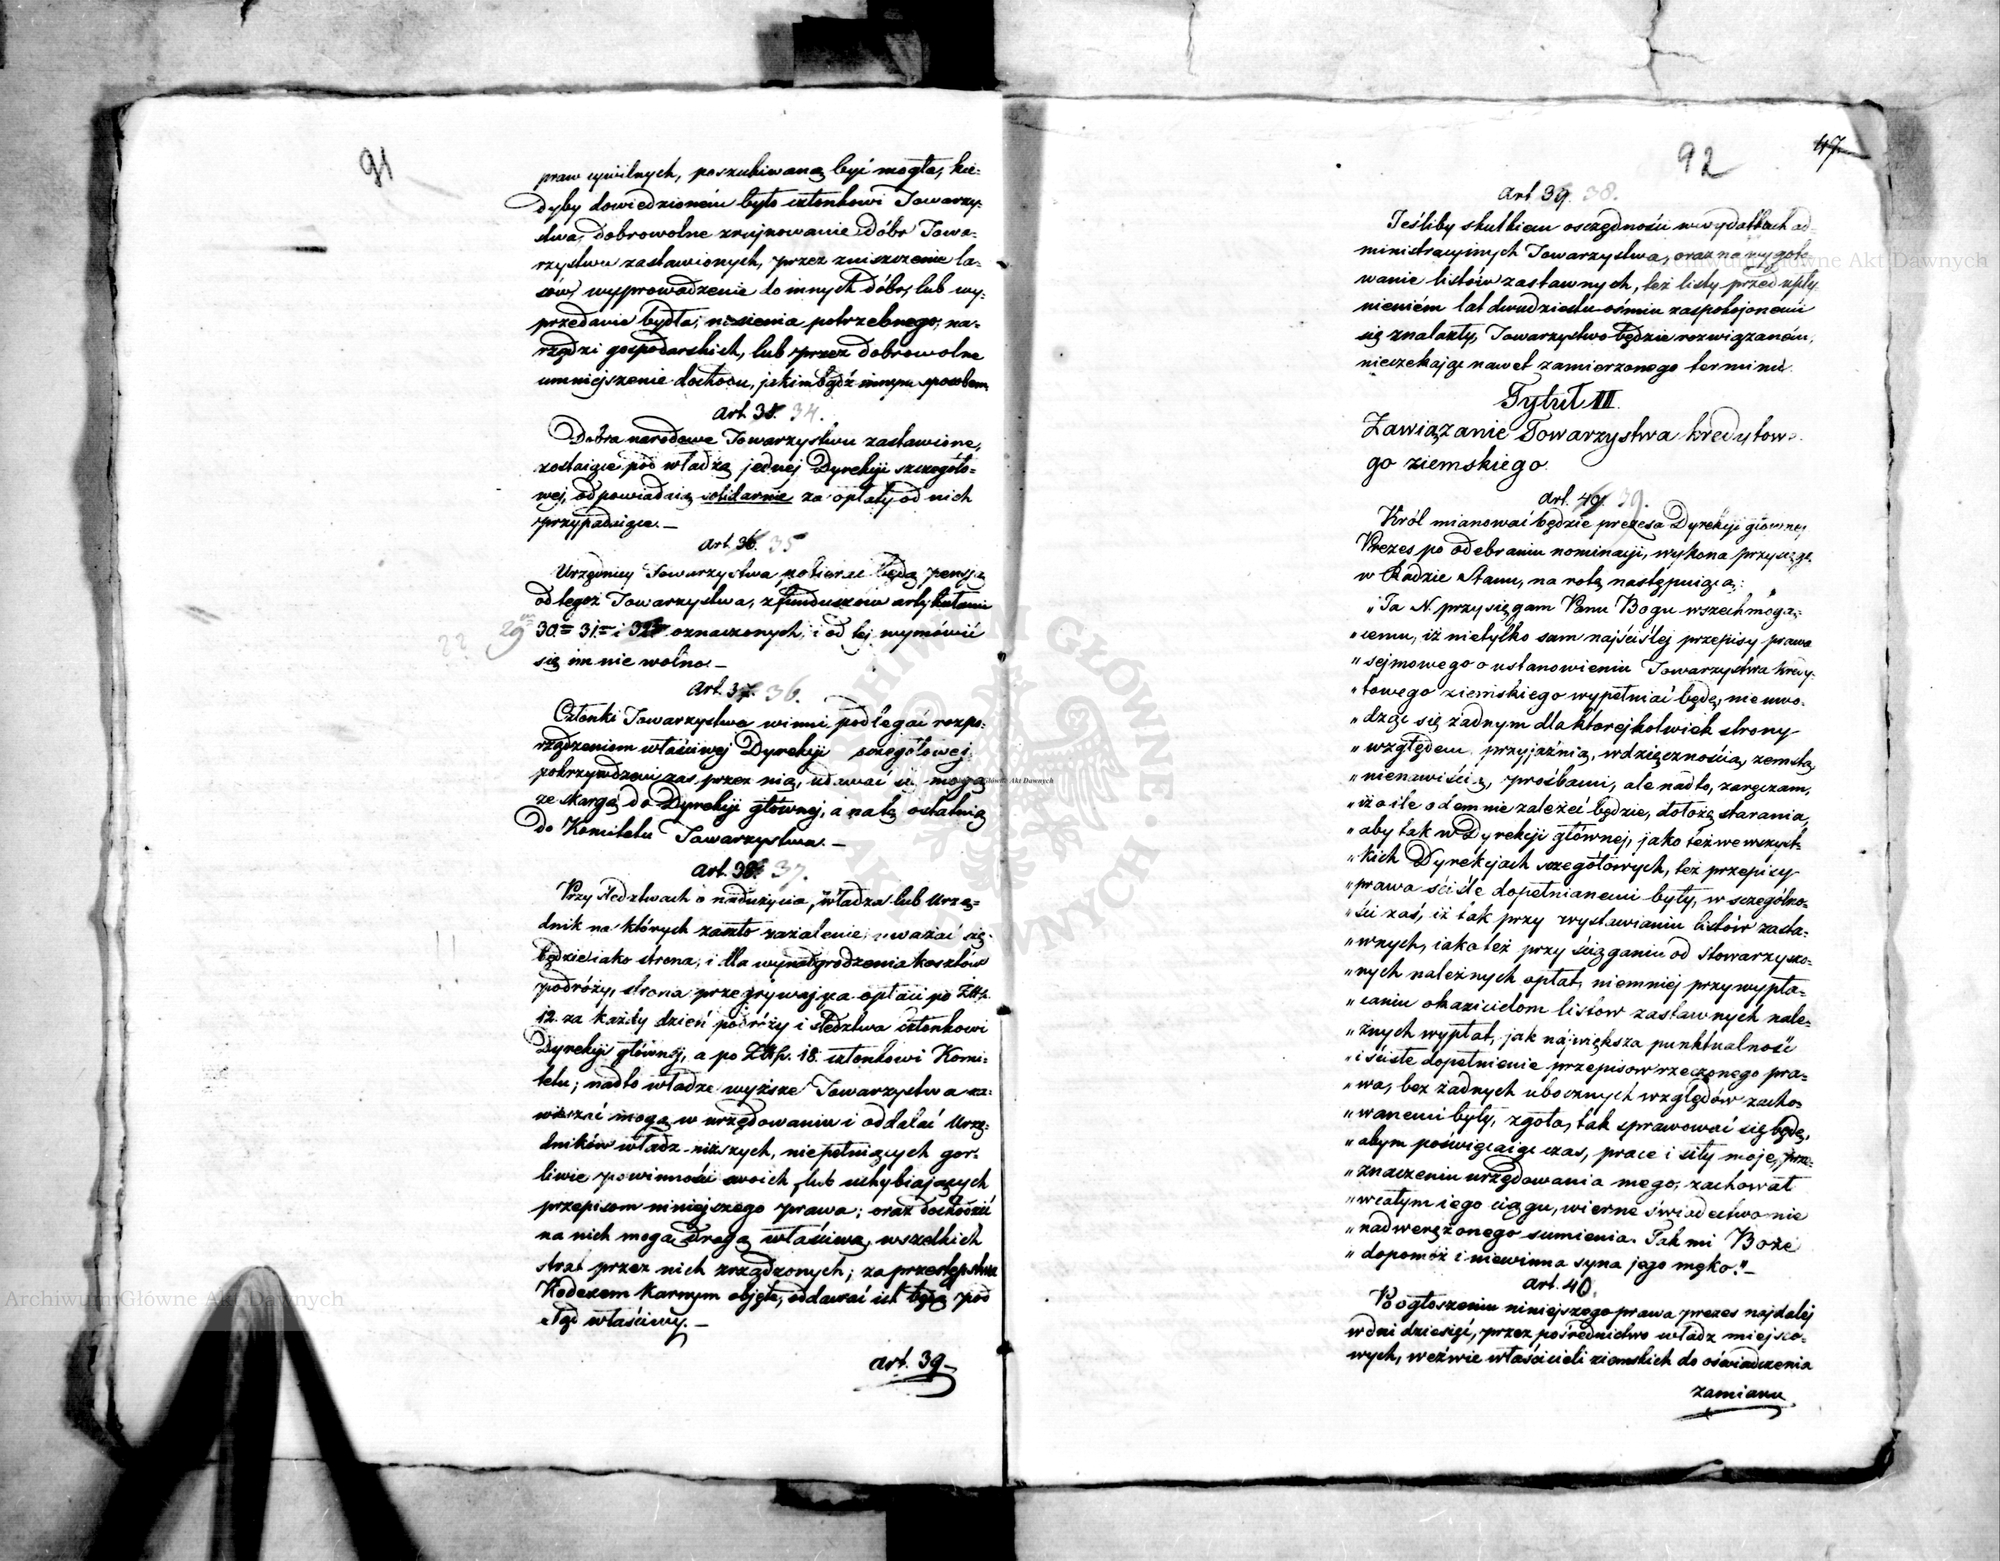 91
praw cywilnych, poszukiwaną być mogła, kie-
dyby dowiedzionem było członkowi Towarzy-
stwa, dobrowolne zrujnowanie Dóbr Towa-
rzystwu zastawionych, przez zniszczenie la-
sów, wyprowadzenie do innych dóbr, lub wy-
przedanie bydła, nasienia potrzebnego, na-
rzędzi gospodarskich, lub przez dobrowolne
umniejszenie dochodu, jakimbądź innym sposobem
Art. 35. 34.
Dobra narodowe Towarzystwu zastawione,
zostaiące pod władzą jednej Dyrekcji szczegóło-
wej, odpowiadaią solidarnie za opłaty od nich
przypadaiące. —
Art. 36. 35
Urzędnicy Towarzystwa pobierać będą pensją
od tegoż Towarzystwa, z funduszów artykułami
29 30. 31. i 32 oznaczonych, i od tej wymówić
się im nie wolno. —
Art. 37. 36.
Członki Towarzystwa winni podlegać rozpo-
rządzeniom właściwej Dyrekcji szczegółowej
pokrzywdzeni zaś przez nią, udawać się mogą
ze skargą do Dyrekcji głównej, a na tę ostatnią
do Komitetu Towarzystwa. —
Art. 38. 37.
Przy śledztwach o nadużycia, władza lub Urzę-
dnik na których zaszło zażalenie, uważać się
będzie iako strona; i dla wynadgrodzenia kosztów
podróży, strona przegrywająca opłaci po Złtp.
12. za każdy dzień podróży i śledztwa członkowi
Dyrekcji głównej, a po Złtp. 18. członkowi Komi-
tetu; nadto władze wyższe Towarzystwa za-
wieszać mogą w urzędowaniu i oddalać Urzę-
dników władz niższych, niepełniących gor-
liwie powinności swoich, lub uchybiających
przepisom niniejszego prawa; oraz dochodzić
na nich mogą drogą właściwą, wszelkich
strat przez nich zrządzonych; za przestępstwa
Kodexem Karnym objęte, oddawać ich będą pod
sąd właściwy. —
Art. 39.
92
47.
Art. 39. 38.
Jeśliby skutkiem osczędności w wydatkach ad-
ministracyjnych Towarzystwa, oraz na wygoto-
wanie listów zastawnych, też listy przed upły-
nieniem lat dwudziestu ośmiu zaspokojonemi
się znalazły, Towarzystwo będzie rozwiązaném,
nieczekając nawet zamierzonego terminu.
Tytuł III.
Zawiązanie Towarzystwa kredytowe-
go ziemskiego.
Art. 40. 39.
Król mianować będzie prezesa Dyrekcji głównej,
Prezes po odebraniu nominacji, wykona przysięgę
w Radzie Stanu, na rotę następuiącą:
„Ja N. przysięgam Panu Bogu wszechmoga-
„cemu, iż nietylko sam najściślej przepisy prawa
„sejmowego o ustanowieniu Towarzystwa kredy-
„towego ziemskiego wypełniać będę, nie uwo-
„dząc się żadnym dla którejkolwiek strony
„względem, przyjaźnią, wdzięcznością, zemstą,
„nienawiścią, prośbami, ale nadto, zaręczam,
„iż o ile odemnie zależeć będzie, dołożę starania,
„aby tak w Dyrekcji głównej, jako też we wszyst-
„kich Dyrekcjach szczegółowych, też przepisy
„prawa ściśle dopełnianemi były, w szczególno-
„ści zaś, iż tak przy wystawianiu listów zasta-
„wnych, iako też przy ściąganiu od Stowarzyszo-
„nych należnych opłat, niemniej przy wypła-
„caniu okazicielom listów zastawnych nale-
„żnych wypłat, jak największa punktualność
„i ścisłe dopełnienie przepisów rzeczonego pra-
„wa, bez żadnych ubocznych względów zacho-
„wanemi były, zgoła, tak sprawować się będę,
„abym poświęcaiąc czas, prace i siły moje, prze-
„znaczeniu urzędowania mego, zachował
„w całym iego ciągu, wierne świadectwo nie
„nadwerężonego sumienia. Tak mi Boże
„dopomóż i niewinna syna jego męko." —
Art. 40.
Po ogłoszeniu niniejszego prawa, prezes najdalej
w dni dziesięć, przez pośrednictwo władz miejsco-
wych, wezwie właścicieli ziemskich do oświadczenia
zamiaru